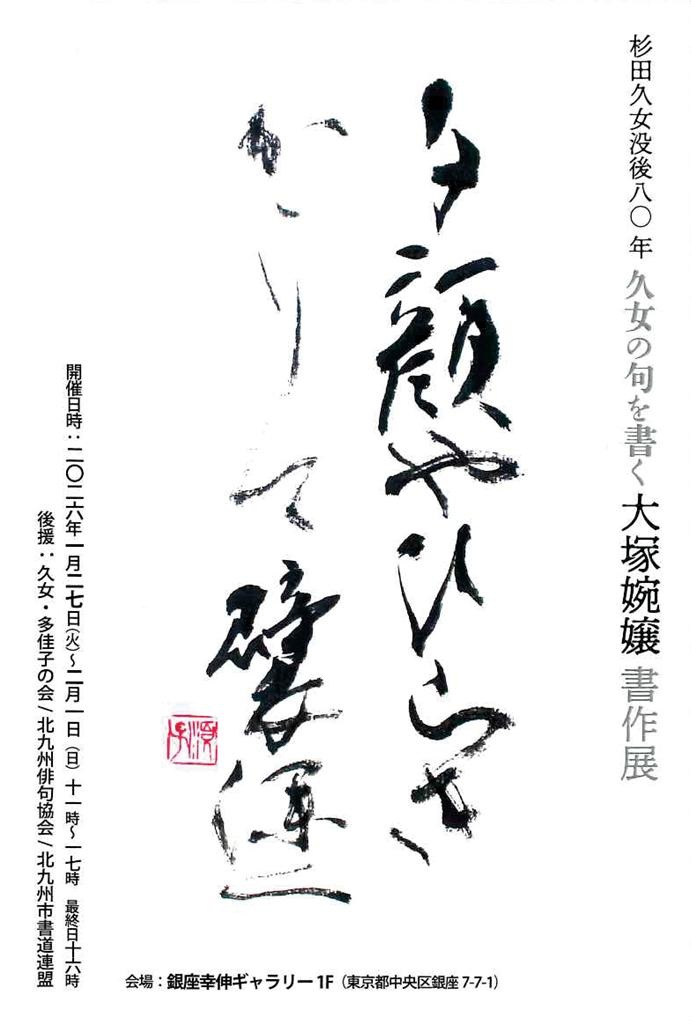 杉田久女没後八〇年 久女の句を書く 大塚婉嬢 書作展
夕顔やひらき
かゝりて襞深く
開催日時：二〇二六年一月二七日(火)〜二月一日(日)十一時〜一七時 最終日十六時
後援：久女・多佳子の会/北九州俳句協会/北九州市書道連盟
会場：銀座幸伸ギャラリー1F（東京都中央区銀座7-7-1）